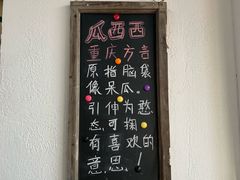 瓜西西
重庆方言
原指脑袋
像呆瓜。
引伸为憨
态可掬
有喜欢的
意思！